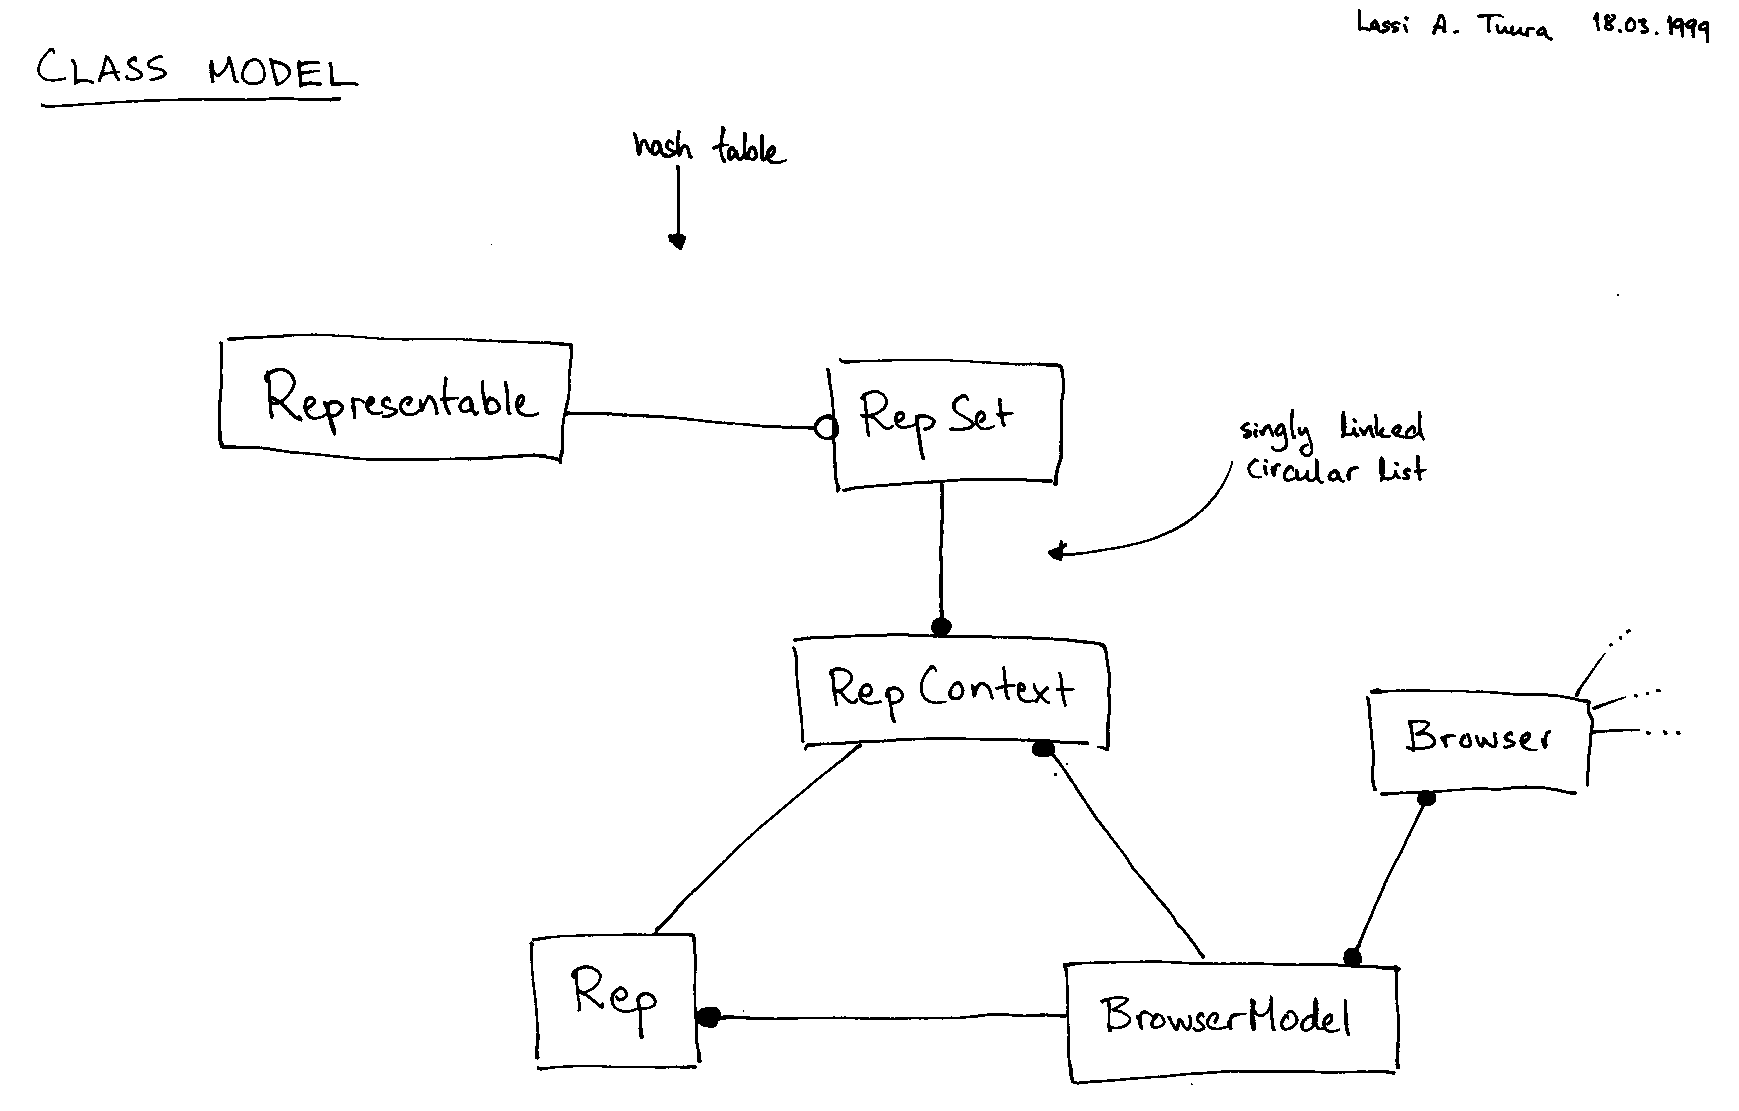 Lassi A. Tuura 18.03.1999
CLASS MODEL
hash table
Representable
Rep Set
singly linked
circular list
Rep Context
Browser
Rep
BrowserModel